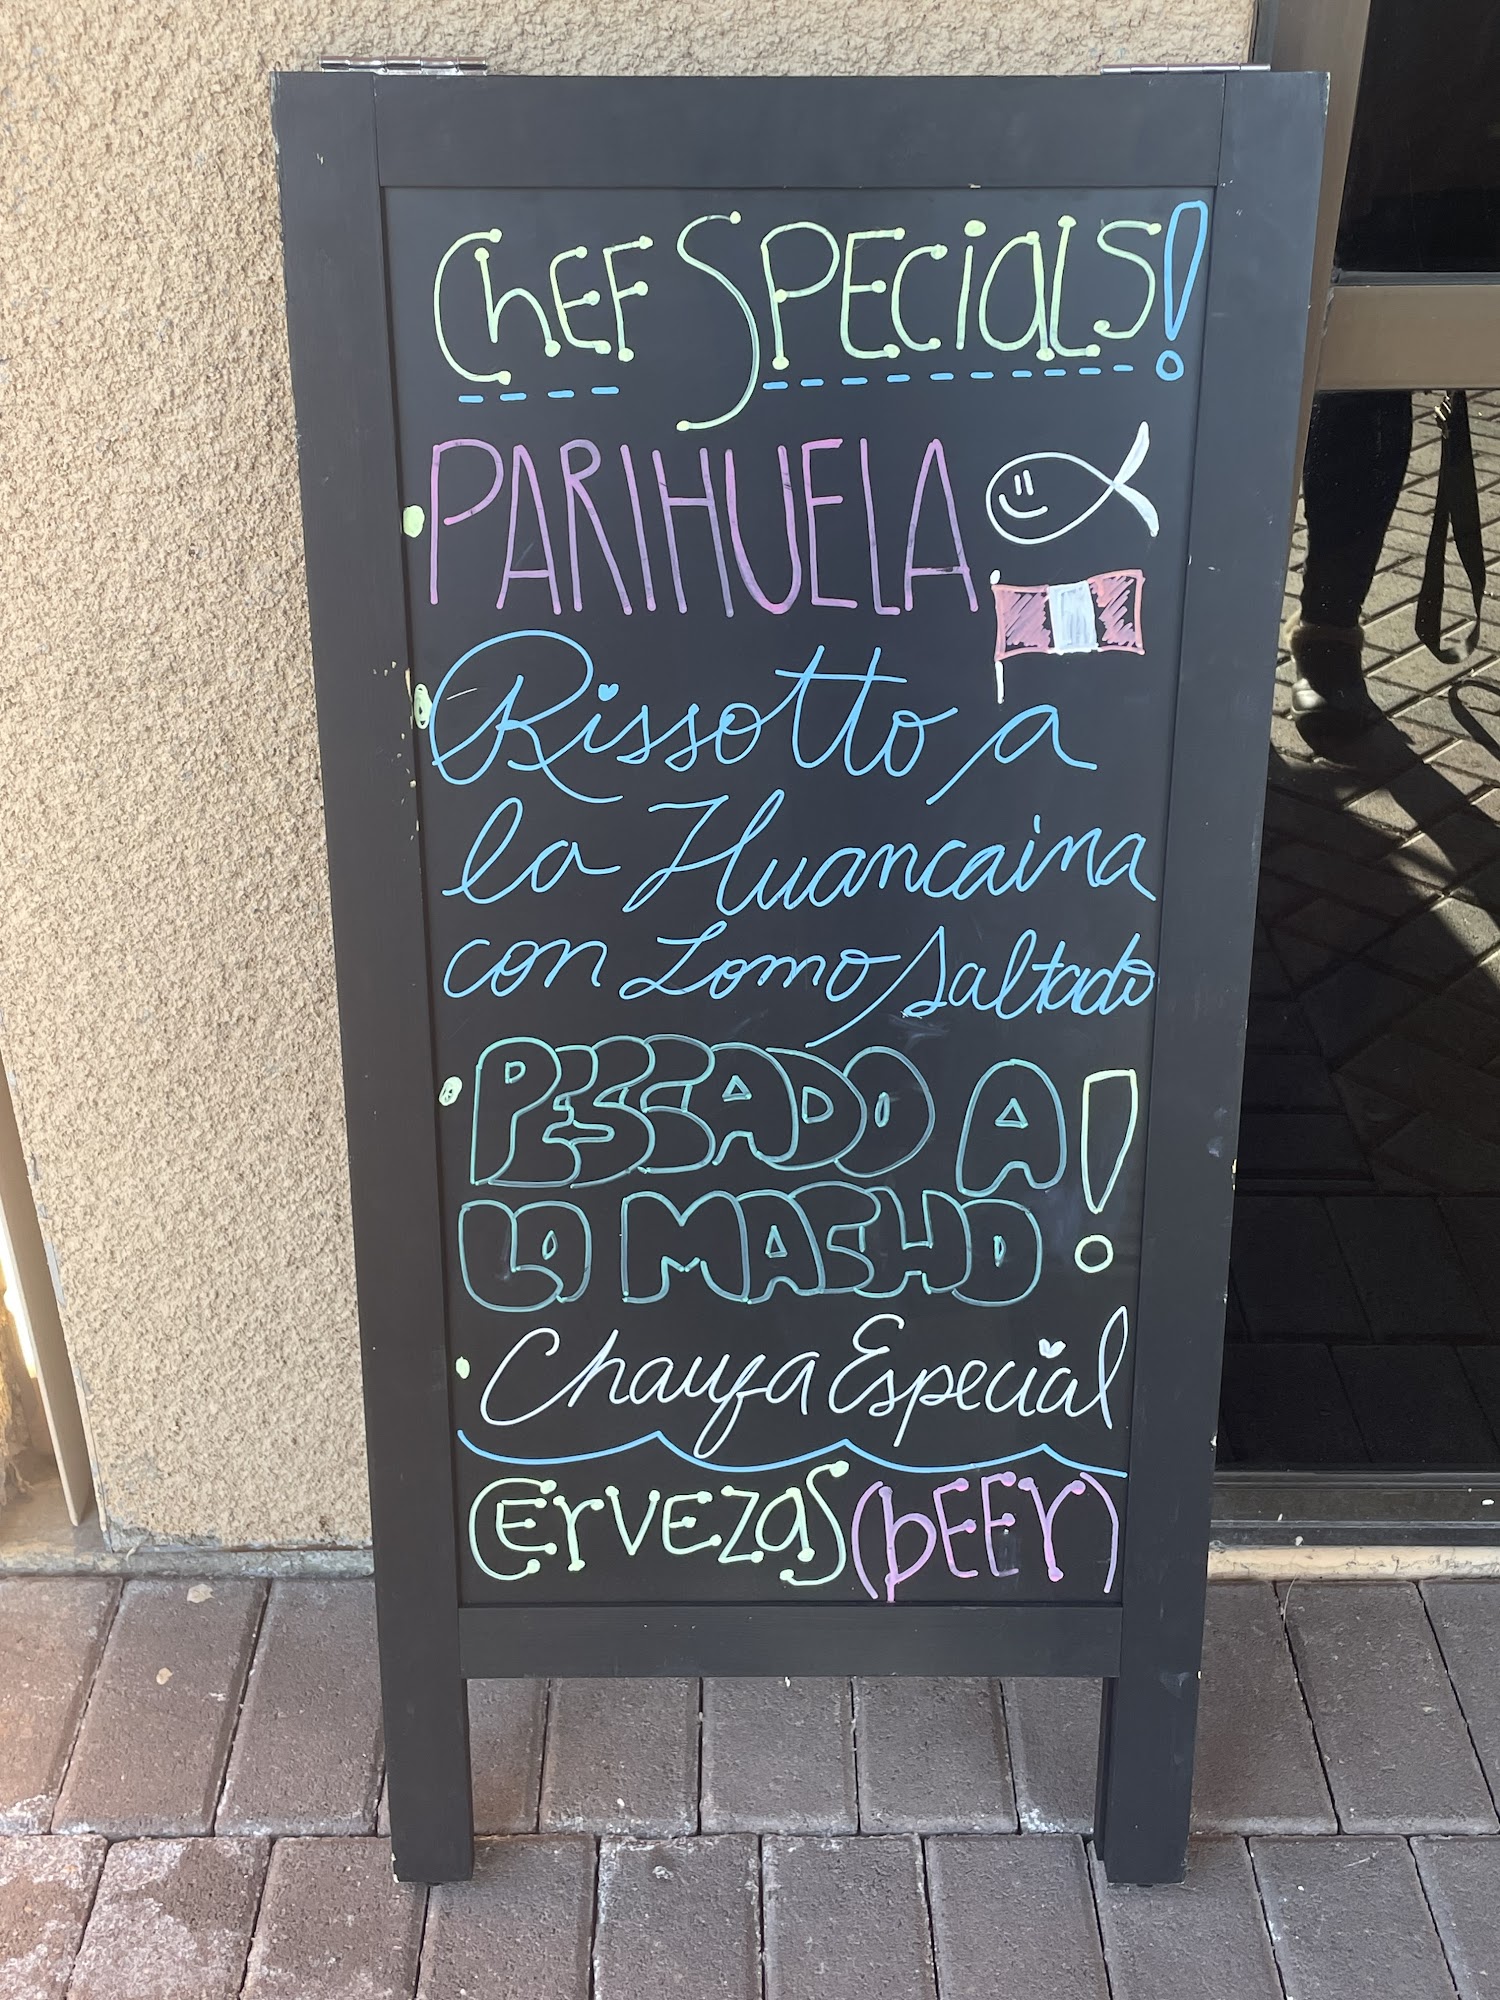 Chef Specials!
PARIHUELA
Rissotto a
la Huancaina
con Lomo Saltado
PESCADO A
LA MACHO!
Chaufa Especial
Cervezas (beer)